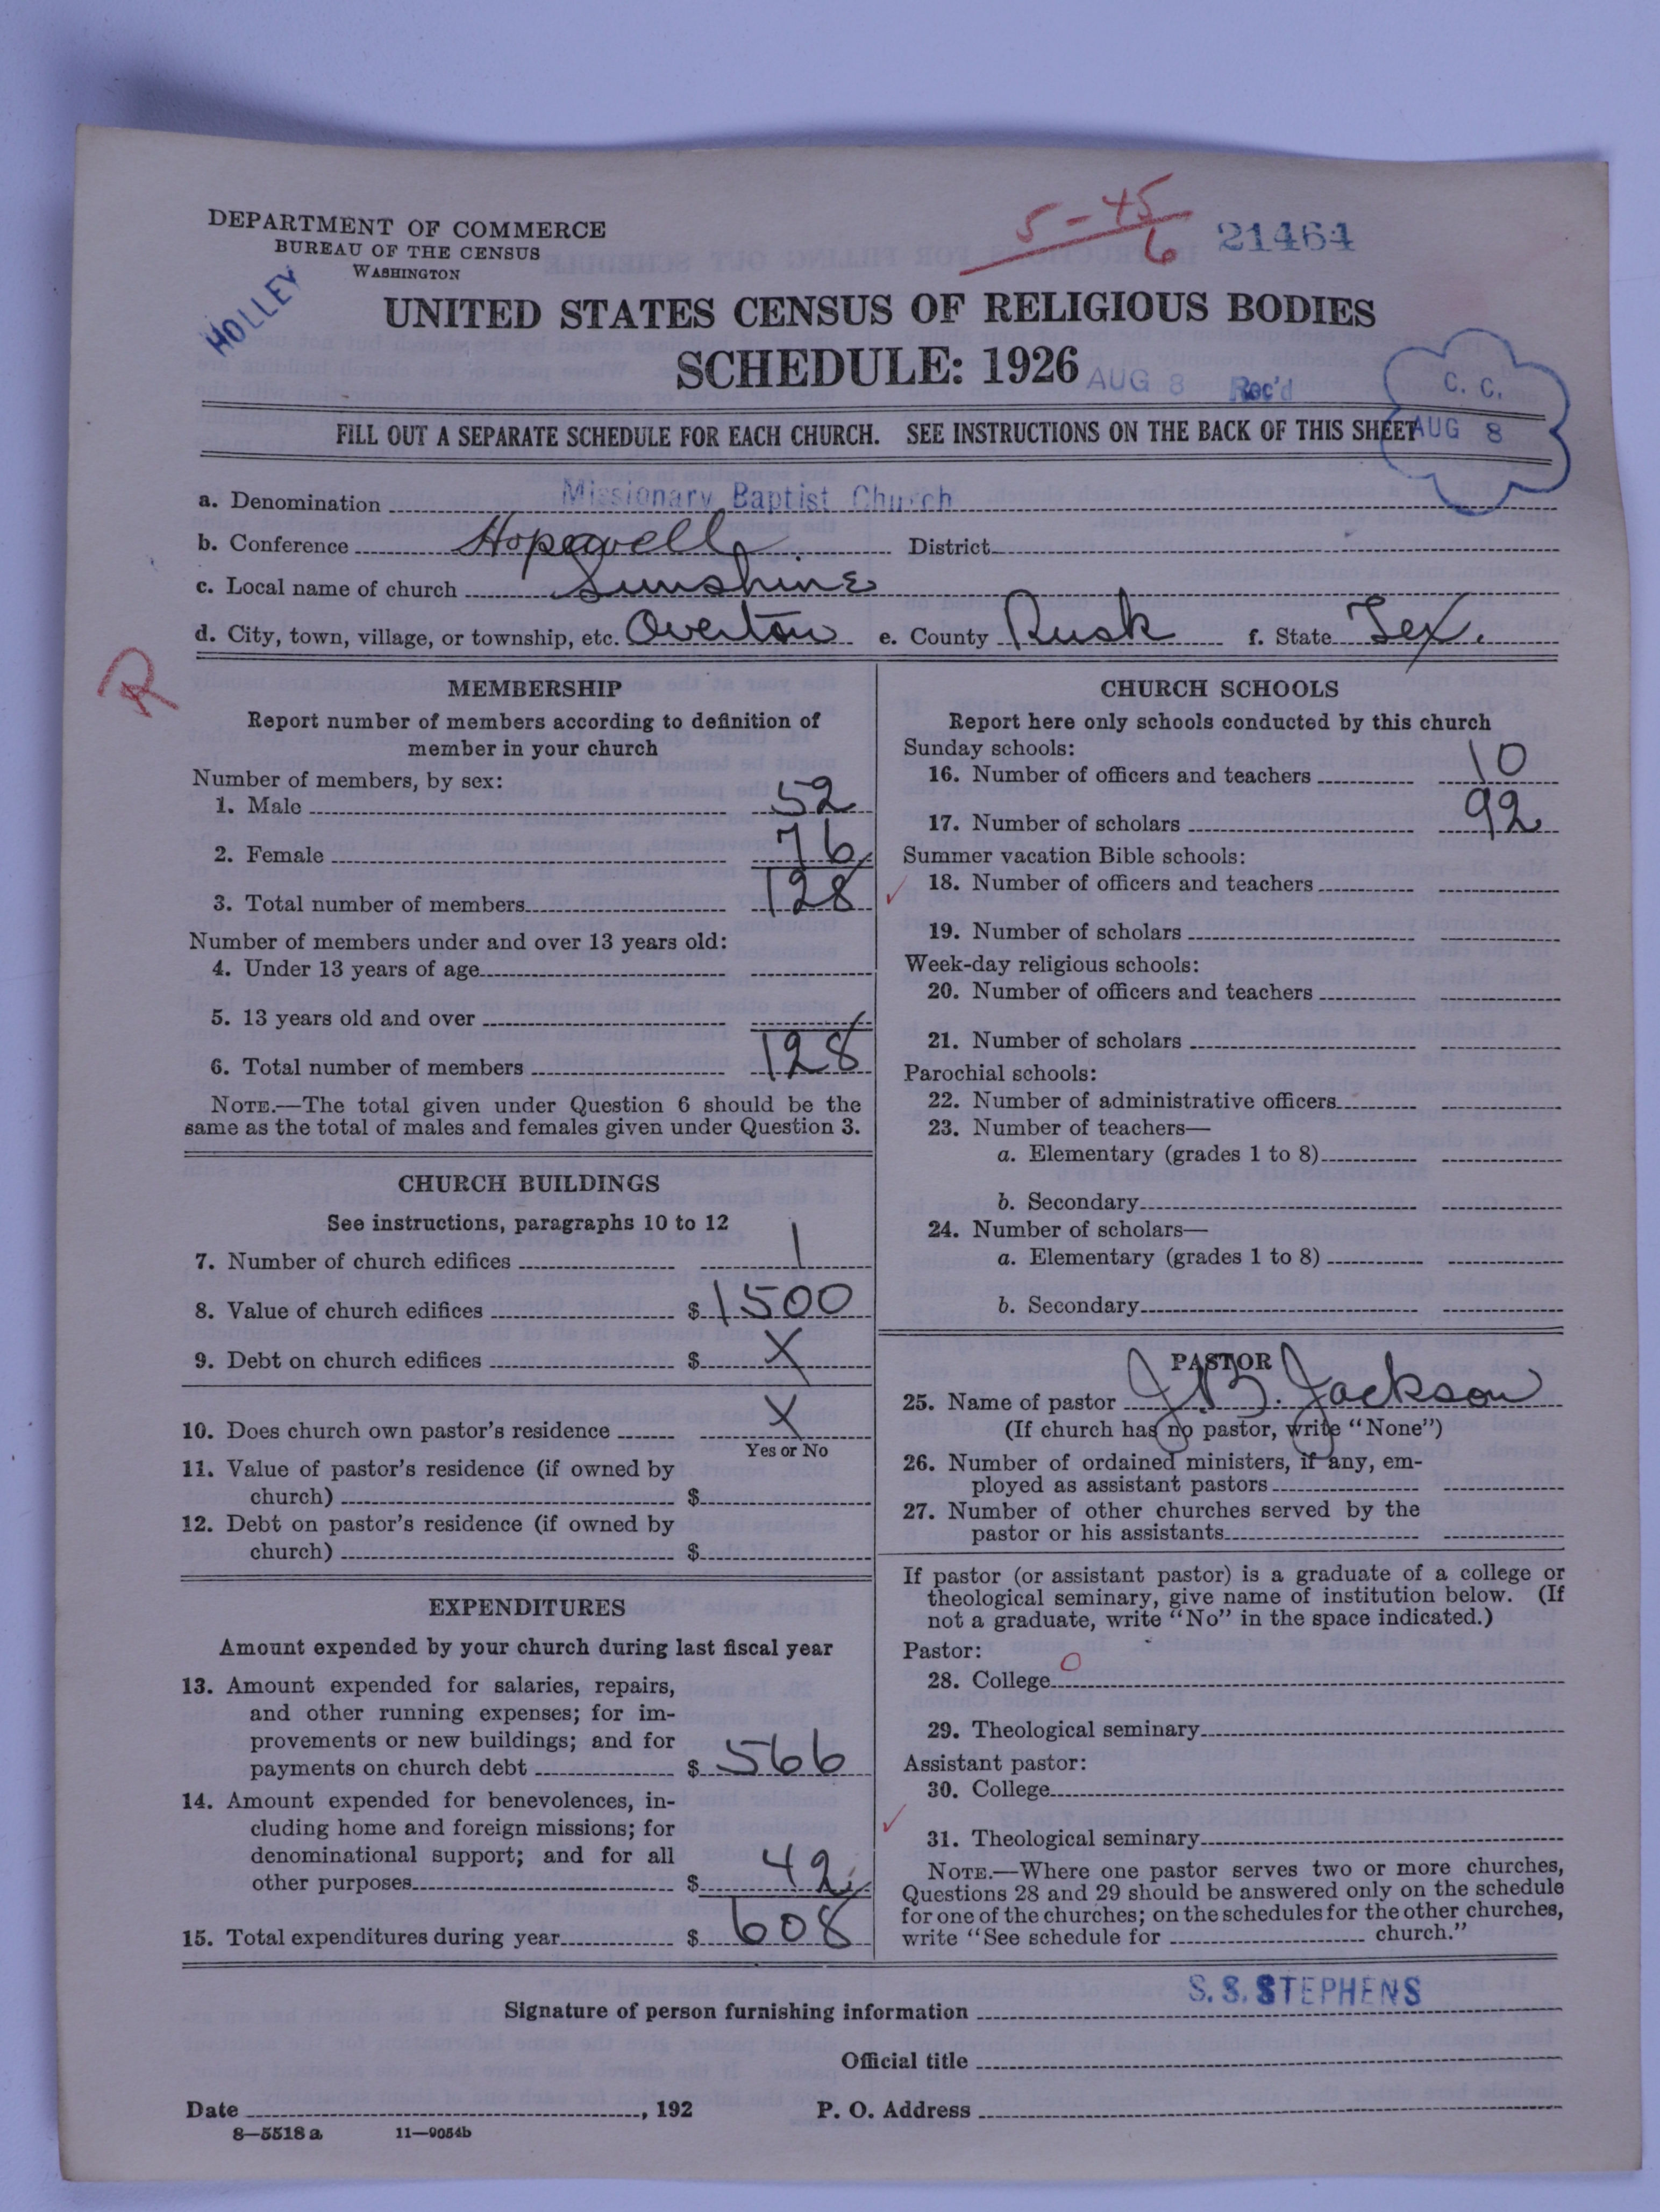 DEPARTMENT OF COMMERCE
BUREAU OF THE CENSUS
WASHINGTON
HOLLEY
5-45
6
21464
UNITED STATES CENSUS OF RELIGIOUS BODIES
SCHEDULE: 1926
AUG 8 Rec'd
C. C.
AUG 8
FILL OUT A SEPARATE SCHEDULE FOR EACH CHURCH. SEE INSTRUCTIONS ON THE BACK OF THIS SHEET
a. Denomination Missionary Baptist Church
b. Conference Hopewell District
c. Local name of church Sunshine
d. City, town, village, or township, etc. Overton e. County Rusk f. State Tex.
R
MEMBERSHIP
Report number of members according to definition of
member in your church
Number of members, by sex:
1. Male 52
2. Female 76
3. Total number of members 128
Number of members under and over 13 years old:
4. Under 13 years of age
5. 13 years old and over
6. Total number of members 128
NOTE.—The total given under Question 6 should be the
same as the total of males and females given under Question 3.
CHURCH BUILDINGS
See instructions, paragraphs 10 to 12
7. Number of church edifices 1
8. Value of church edifices $ 1500
9. Debt on church edifices $ X
10. Does church own pastor's residence X
Yes or No
11. Value of pastor's residence (if owned by
church) $
12. Debt on pastor's residence (if owned by
church) $
EXPENDITURES
Amount expended by your church during last fiscal year
13. Amount expended for salaries, repairs,
and other running expenses; for im-
provements or new buildings; and for
payments on church debt $ 566
14. Amount expended for benevolences, in-
cluding home and foreign missions; for
denominational support; and for all
other purposes $ 42
15. Total expenditures during year $ 608
CHURCH SCHOOLS
Report here only schools conducted by this church
Sunday schools:
16. Number of officers and teachers 10
17. Number of scholars 92
Summer vacation Bible schools:
18. Number of officers and teachers
19. Number of scholars
Week-day religious schools:
20. Number of officers and teachers
21. Number of scholars
Parochial schools:
22. Number of administrative officers
23. Number of teachers—
a. Elementary (grades 1 to 8)
b. Secondary
24. Number of scholars—
a. Elementary (grades 1 to 8)
b. Secondary
PASTOR
25. Name of pastor J. B. Jackson
(If church has no pastor, write "None")
26. Number of ordained ministers, if any, em-
ployed as assistant pastors
27. Number of other churches served by the
pastor or his assistants
If pastor (or assistant pastor) is a graduate of a college or
theological seminary, give name of institution below. (If
not a graduate, write "No" in the space indicated.)
Pastor:
28. College O
29. Theological seminary
Assistant pastor:
30. College
31. Theological seminary
NOTE.—Where one pastor serves two or more churches,
Questions 28 and 29 should be answered only on the schedule
for one of the churches; on the schedules for the other churches,
write "See schedule for church."
Signature of person furnishing information S. S. STEPHENS
Official title
Date , 192 P. O. Address
8—5518 a 11—9054b